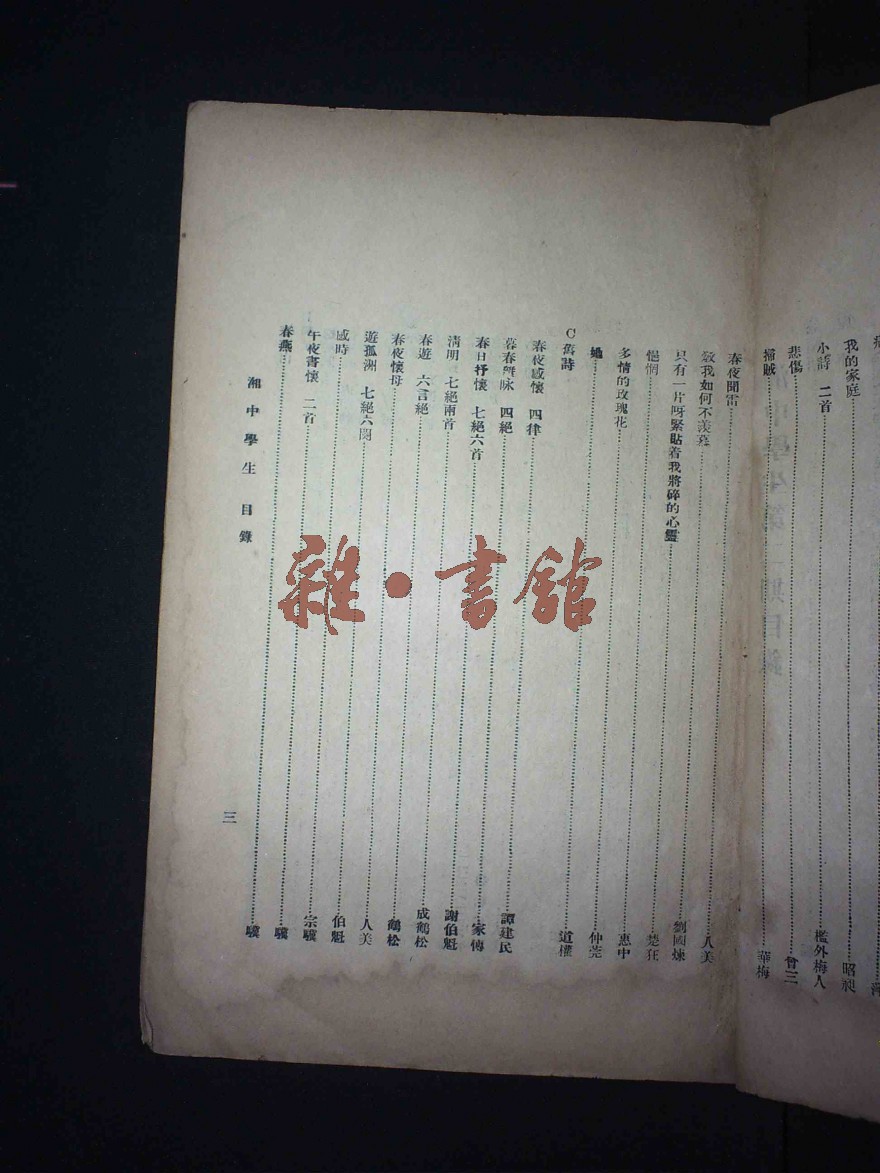 我的家庭……昭昶
小詩 二首……檻外梅人
悲傷……曾三
掃賊……華梅
春夜聞雷……
教我如何不羨慕……人美
只有一片呀緊貼着我將碎的心靈……劉國煉
悵惘……楚狂
多情的玫瑰花……惠中
她……仲莞
C舊詩……道權
春夜感懷 四律……
暮春雜咏 四絕……譚建民
春日抒懷 七絕六首……家傳
清明 七絕兩首……謝伯魁
春遊 六言絕……成鶴松
春夜懷母……鶴松
遊孤洲 七絕六闋……人美
感時……伯魁
午夜書懷 二首……宗驥
春燕……驥
湘中學生 目錄 三
雜·書館